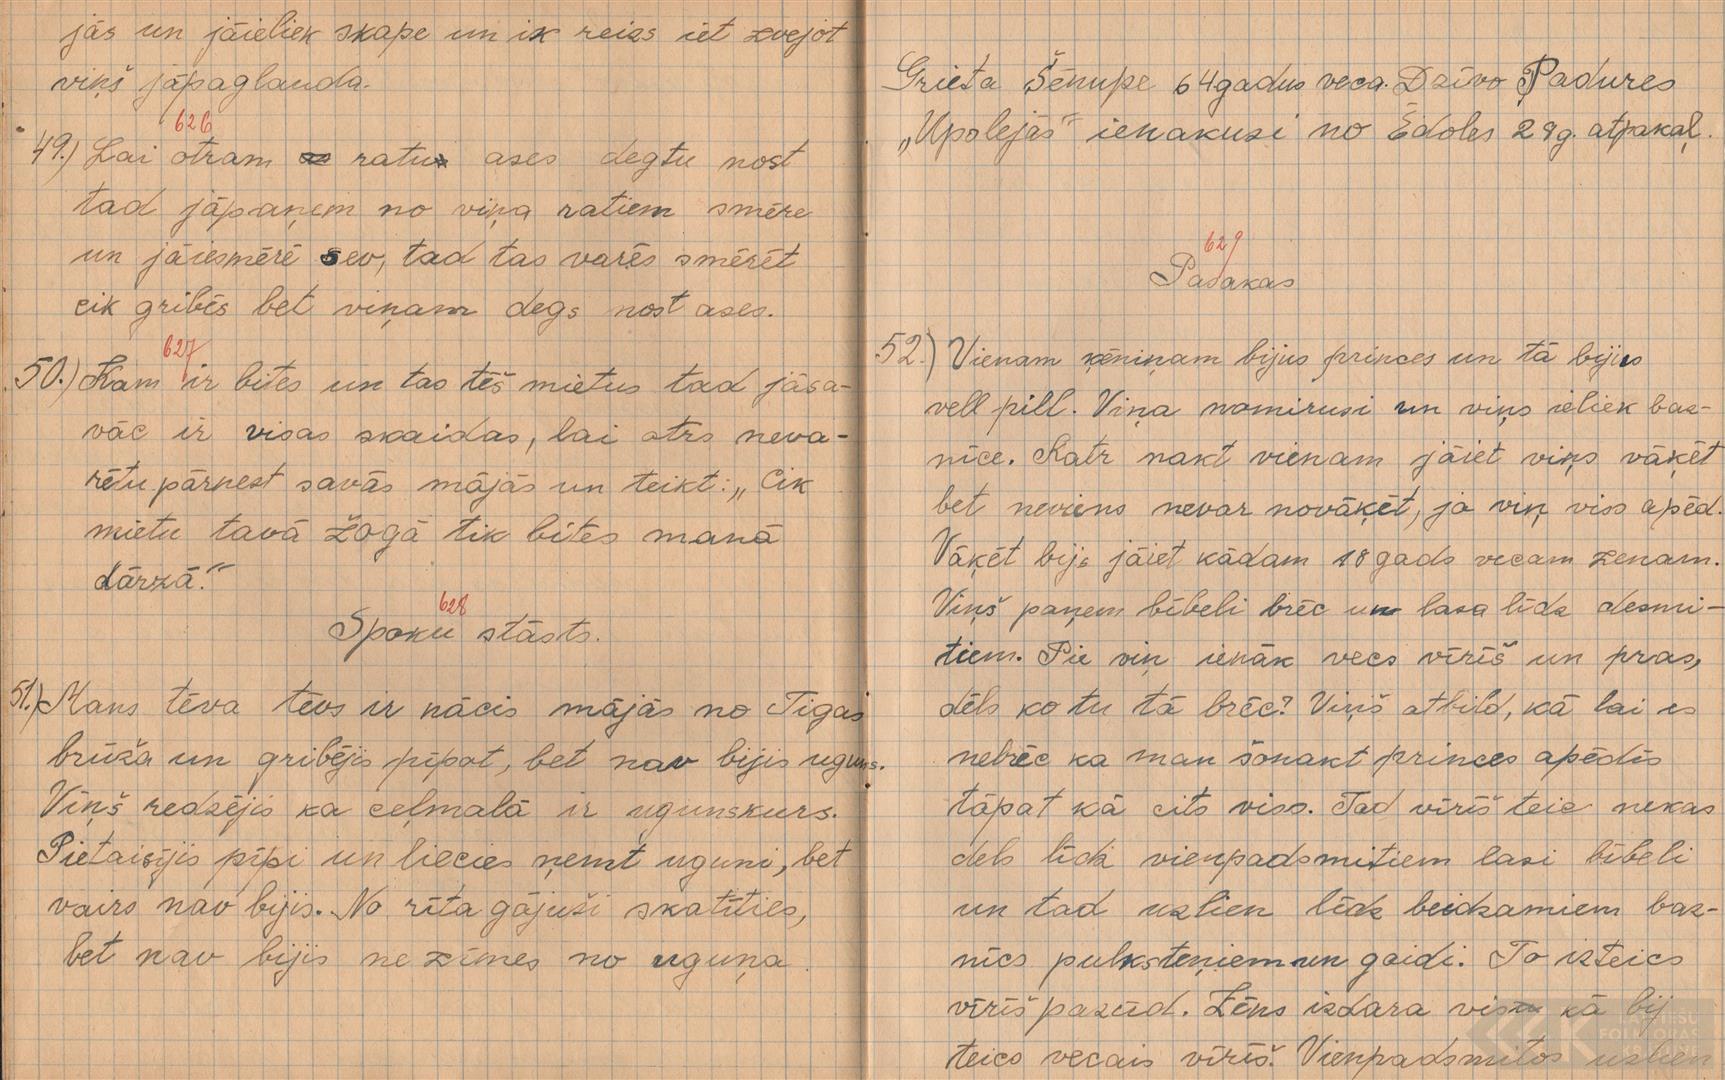 jās un jāieliek skape un ik reizs iet zvejot
viņš jāpaglauda.
626
49.) Lai otram ratu ases degtu nost
tad jāpaņem no viņa ratiem smēre
un jāiesmērē sev, tad tas varēs smērēt
cik gribēs bet viņam degs nost ases.
627
50.) Kam ir bites un tas tēš mietus tad jāsa-
vāc ir visas skaidas, lai otrs neva-
rētu pārnest savās mājās un teikt: „Cik
mietu tavā žogā tik bites manā
dārzā."
628
Spoku stāsts.
51.) Mans tēva tēvs ir nācis mājās no Tigas
brūža un gribējis pīpot, bet nav bijis uguns.
Viņš redzējis ka ceļmalā ir ugunskurs.
Pietaisījis pīpi un liecies ņemt uguni, bet
vairs nav bijis. No rīta gājuši skatīties,
bet nav bijis ne zīmes no uguņa.
Grieta Šēnupe 64gadus veca. Dzīvo Padures
„Upolejās" ienakusi no Ēdoles 28g. atpakaļ.
629
Pasakas
52.) Vienam ķēniņam bijus princes un tā bijus
vell pill. Viņa nomirusi un viņs ieliek baz-
nīce. Katr nakt vienam jāiet viņs vāķēt
bet neviens nevar novāķēt, jo viņ viss apēd.
Vāķēt bijs jāiet kādam 18gads vecam zenam.
Viņš paņem bībeli brēc un lasa līdz desmi-
tiem. Pie viņ ienāk vecs vīrīš un pras,
dēls ko tu tā brēc? Viņš atbild, kā lai es
nebrēc ka man šonakt princes apēdīs
tāpat kā cits viss. Tad vīrīš teic nekas
dels līdz vienpadsmitiem lasi bībeli
un tad uzlien līdz beidzamiem baz-
nīcs pulksteņiem un gaidi. To izteics
vīrīš pazūd. Zēns izdara visu kā bij
teics vecais vīrīš. Vienpadsmitos uzlien
LATVIEŠU
FOLKLORAS
KRĀTUVE